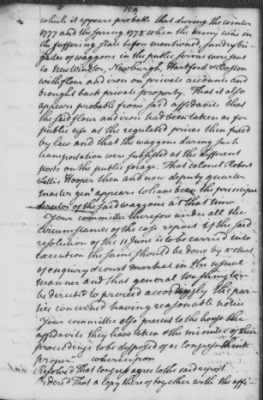 159
which it appears probable that during the winter
1777 and the spring 1778 when the army was in
the suffering state before mentioned, sundry bri
gades of waggons in the public service were sent
to New Windsor, Newburgh, Hartford & Boston
with flour and iron on private accounts and
brought back private property. That it also
appears probable from said affidavits that
the said flour and iron had been taken as for
public use at the regulated prices then fixed
by law and that the waggons during such
transportation were supplied at the different
posts on the public forage. That colonel Robert
Lettis Hooper then and now deputy quarter
master gen^l appears to have been the principal
director of the said waggons at that time
Your committee therefore under all the
circumstances of the case report that the said
resolution of the 11 June is to be carried into
execution the same should be done by a court
of enquiry & court martial in the usual
manner and that general Washington
be directed to proceed accordingly the par
ties concerned having reasonable notice
Your committee also present to the house the
affidavits they have taken & the minutes of their
proceedings to be disposed of as congress think
proper whereupon
Resolved that congress agree to the said report
Ordered that a copy thereof together with the affi-